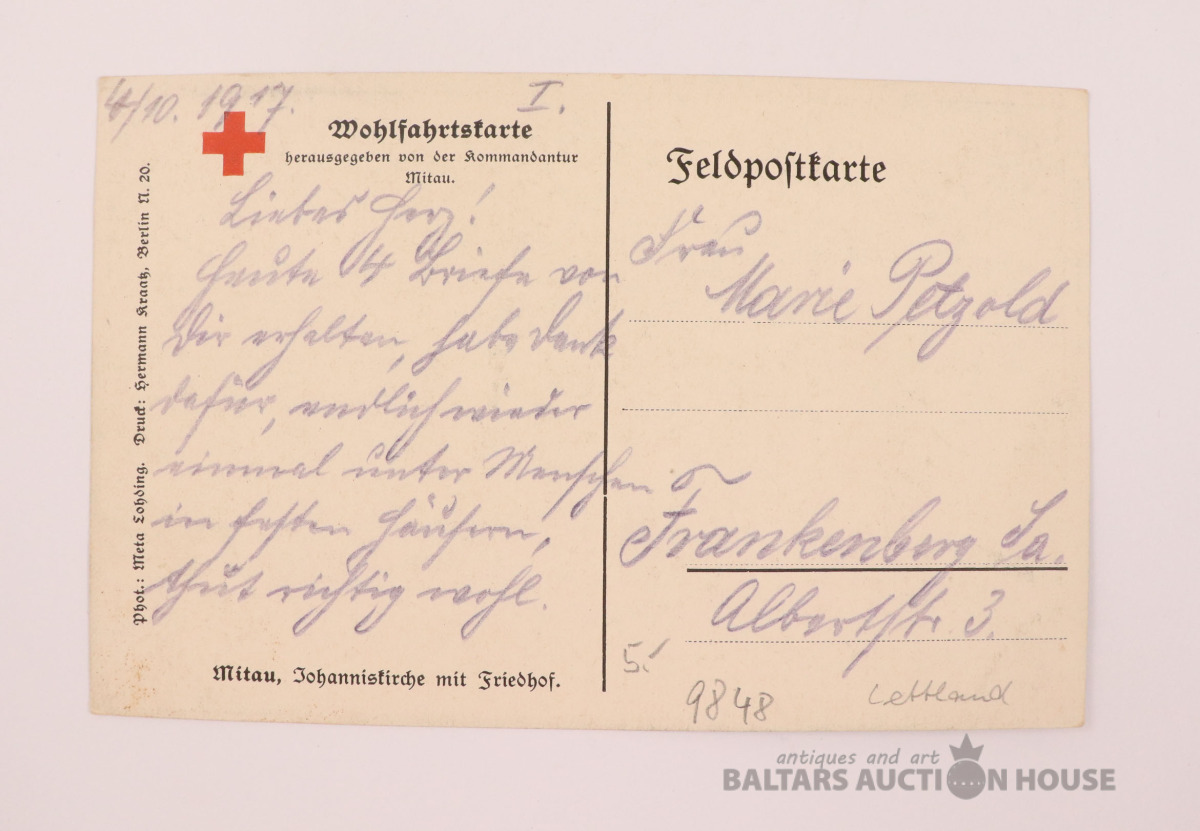 4/10. 1917. I.
Wohlfahrtskarte
herausgegeben von der Kommandantur
Mitau.
Liebes Herz!
Heute 4 Briefe von
Dir erhalten, habe Dank
dafür, endlich wieder
einmal unter Menschen
in festen Häusern,
thut richtig wohl.
Mitau, Johanniskirche mit Friedhof.
Phot.: Meta Lohding. Druck: Hermann Kraatz, Berlin N. 20.
Feldpostkarte
Frau
Marie Petzold
Frankenberg Sa.
Albertstr. 3.
5.-
9848
Lettland
antiques and art
BALTARS AUCTION HOUSE